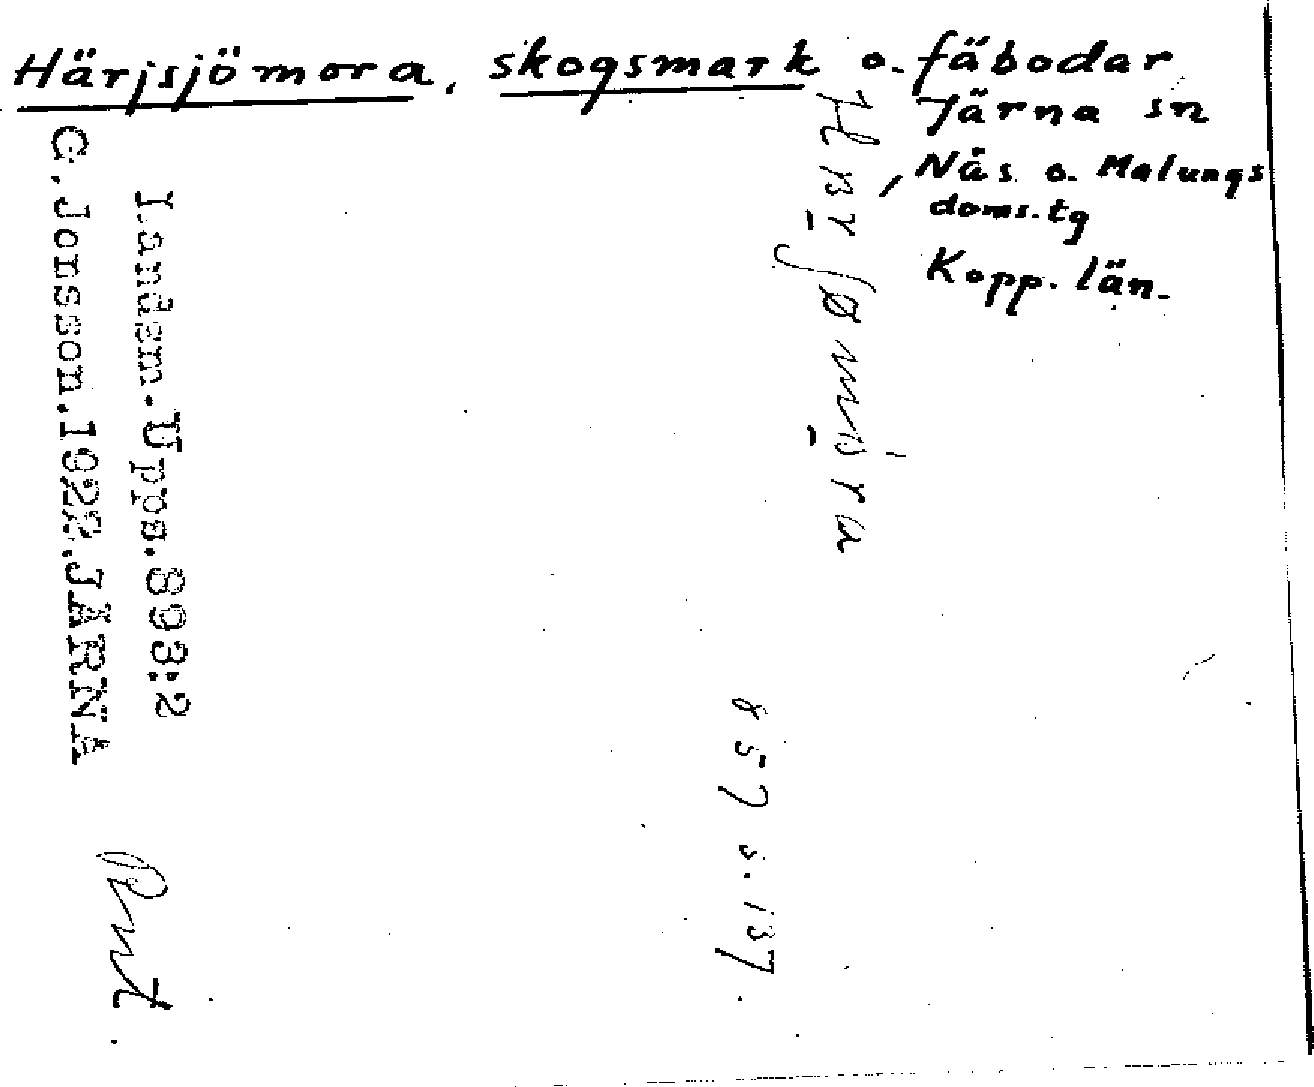 Härjsjömora, skogsmark o. fäbodar
Järna sn
Näs o. Malungs
doms. tg
Kopp. län.
857 s. 137.
Landsm. Upps. 893:2
C. Jonsson. 1922. JÄRNA